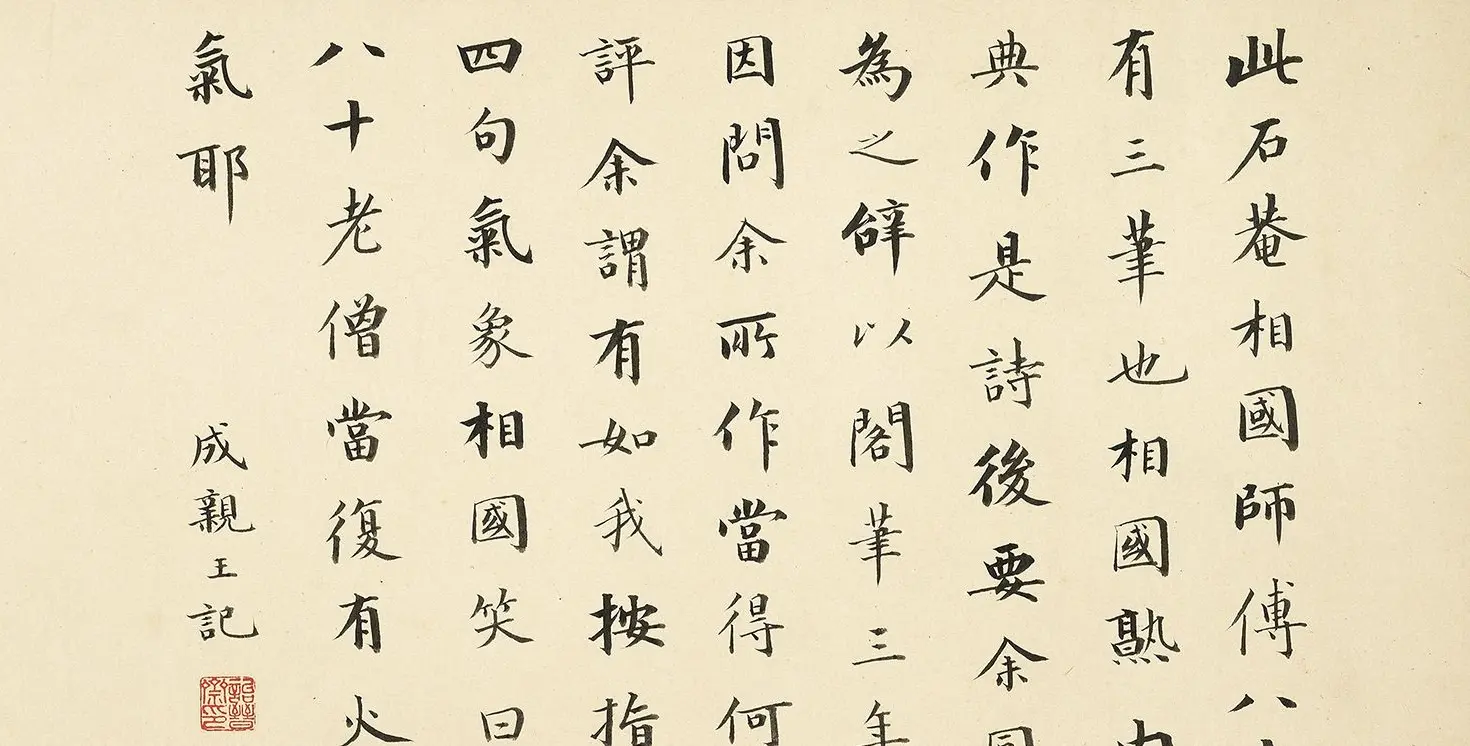 此石菴相國師傅八
有三筆也相國熟内
典作是詩後要余同
為之辭以閣筆三年
因問余所作當得何
評余謂有如我按指
四句氣象相國笑曰
八十老僧當復有火
氣耶
成親王記